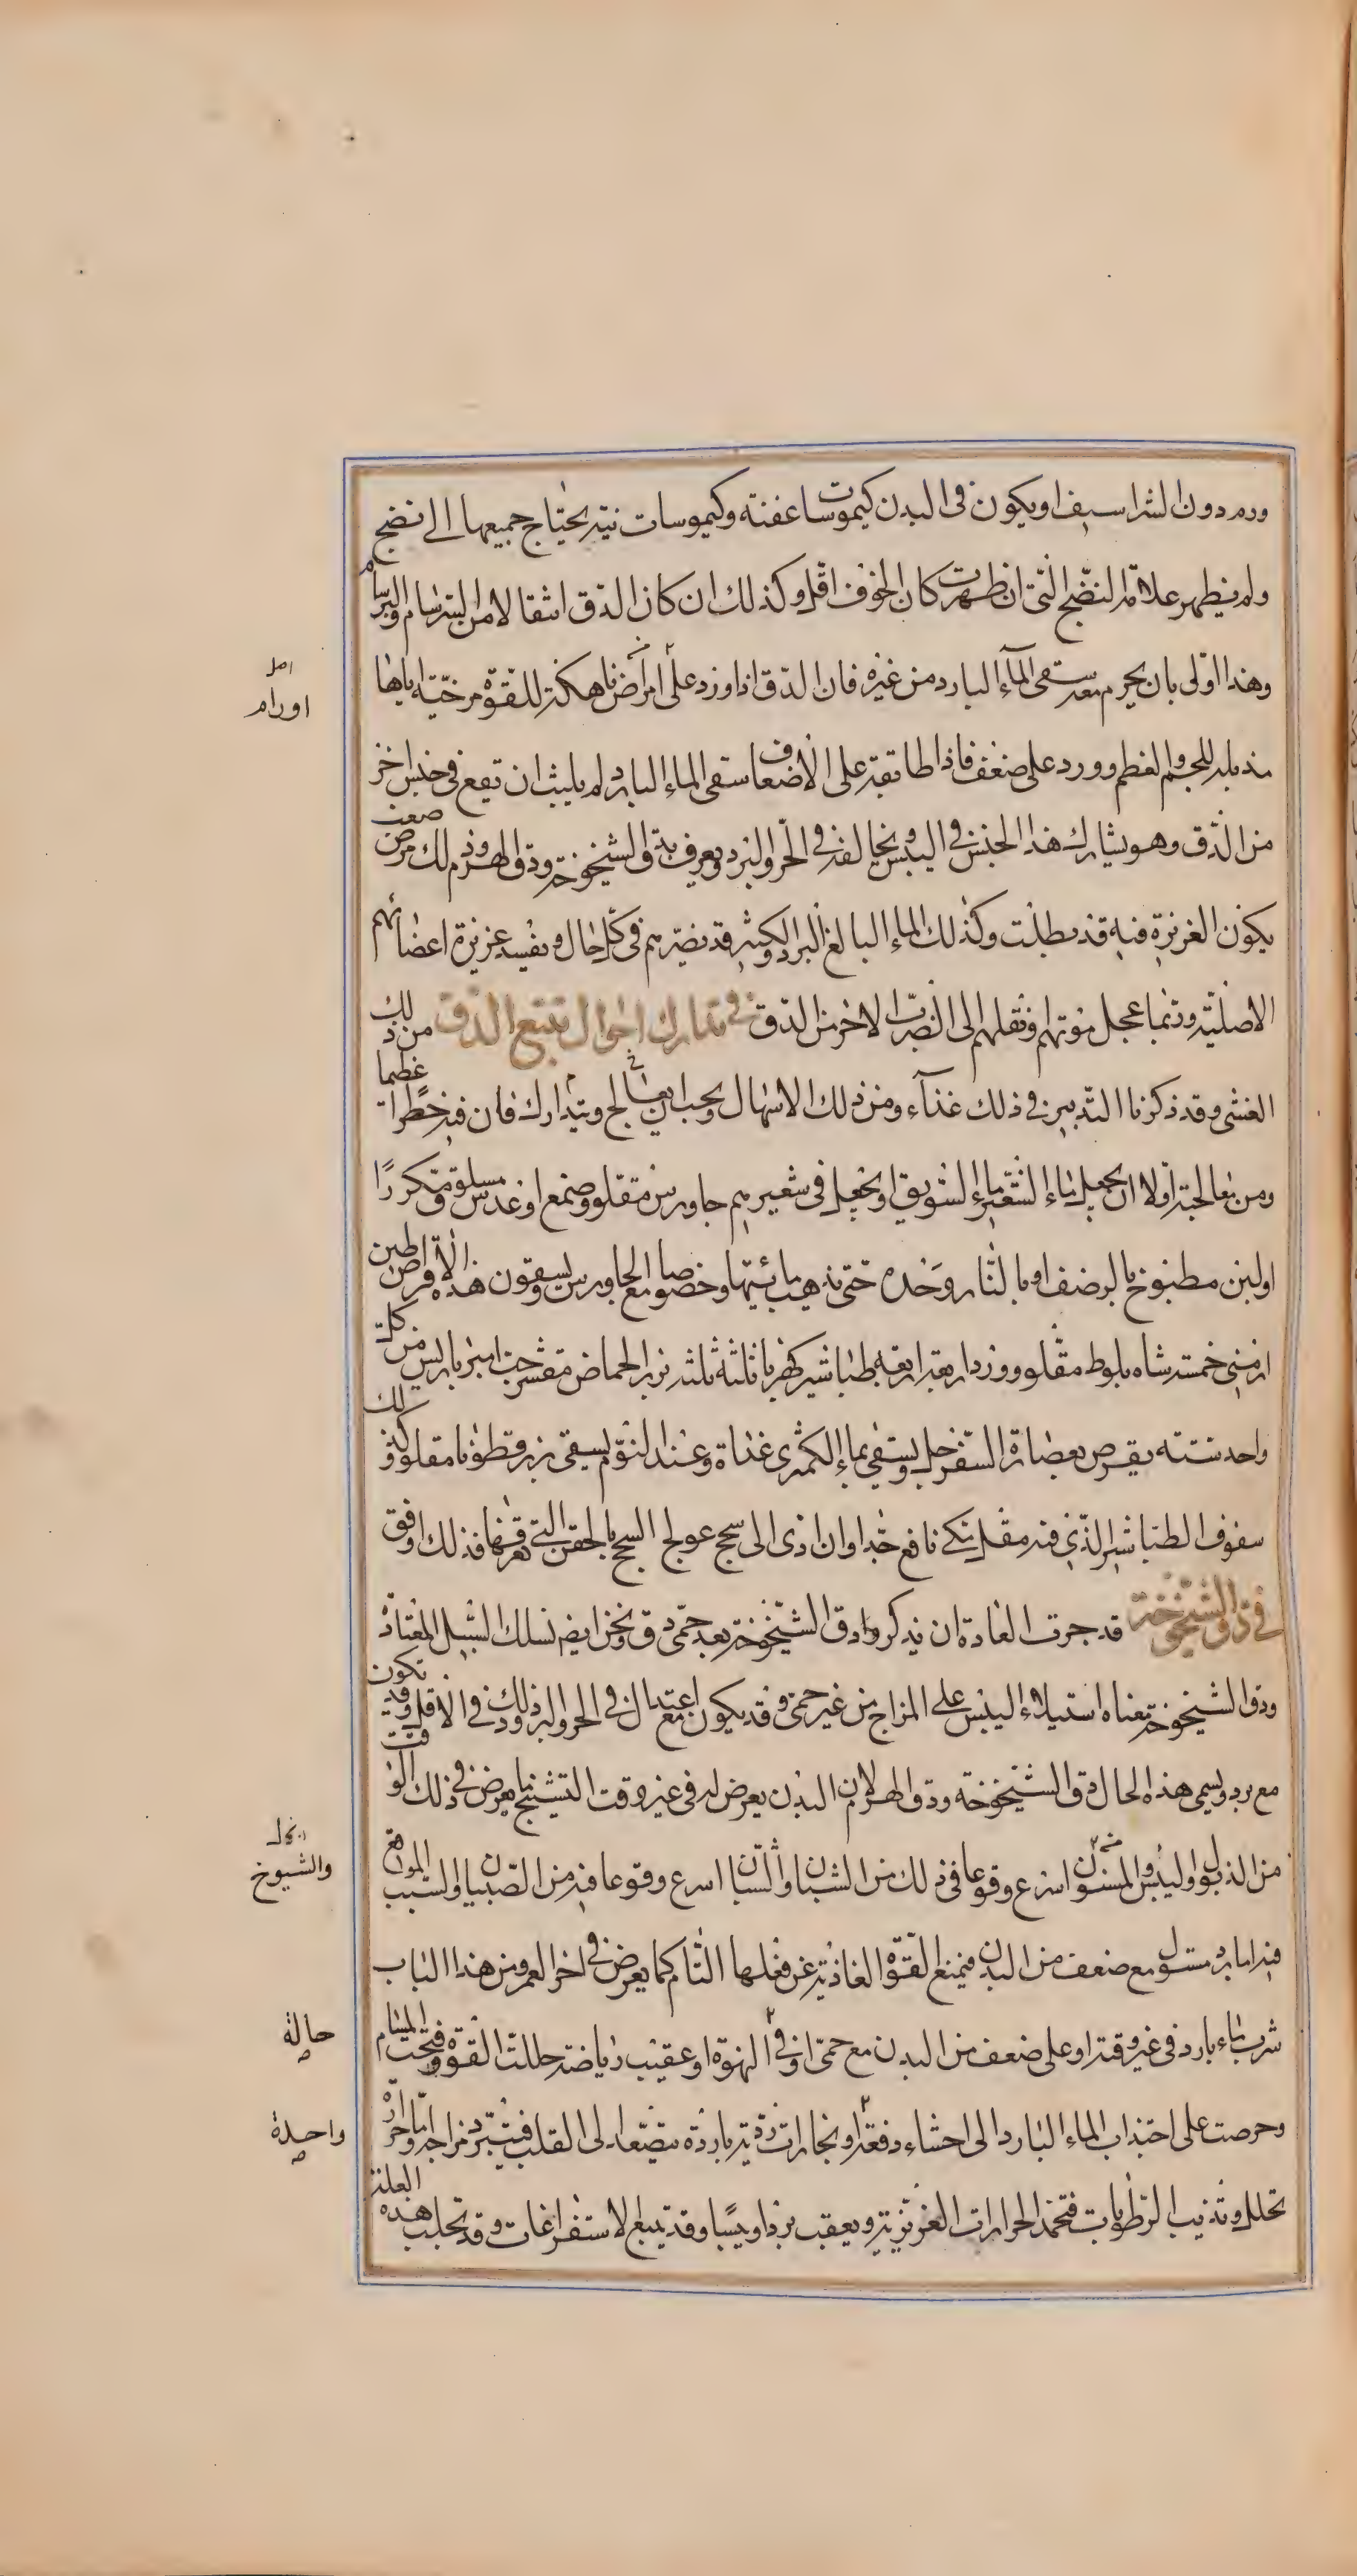 ورم دون الشراسيف او يكون فى البدن كيموسات عفنة وكيموسات نية يحتاج جميعها الى نضج
ولم يظهر علامة النضج التى ان ظهرت كان الخوف اقل وكذلك ان كان الدق انتقالا من السرسام والبرسام
وهذا اولى بان يحرم معه سقى الماء البارد من غيره فان الدق اذا ورد على امراض ناهكة للقوة مرخية اياها
مذبلة للحم والعظم وورد على ضعف فاذا طابقه على الاضعاف سقى الماء البارد لم يلبث ان تقع فى جنس اخر
من الدق وهو يشارك هذا الجنس فى اليبس ويخالفه فى الحر والبرد ويعرف بدق الشيخوخة ودق الهرم وذلك مرض صعب
يكون الغريزة فيه قد بطلت وكذلك الماء البالغ البرد والكثير قد يضرهم فى كل حال ويفسد غريزة اعضائهم
الاصلية وربما عجل موتهم ونقلهم الى الضرب الاخر من الدق فى تدارك احوال تتبع الدق من ذلك
الغشى وقد ذكرنا التدبير فى ذلك غذاء ومن ذلك الاسهال ويجب ان يعالج ويتدارك فان فيه خطرا عظيما
ومن معالجته اولا ان يجعل ماء الشعير ماء السويق او يجعل فى شعيرهم جاورس مقلو وصمغ او عدس مسلوق مكررا
او لبن مطبوخ بالرضف او بالنار وحده حتى يذهب مائيتها وخصوصا مع الجاورس ويسقون هذه الاقراص طين
ارمنى خمسة شاه بلوط مقلو وورد اربعة اربعة طباشير كهربا ثلثة ثلثة بزر الحماض مقشر حب امبرباريس من كل
واحد ستة يقرص بعصارة السفرجل ويسقى بماء الكمثرى غداة وعند النوم يسقى بزرقطونا مقلو وكذلك
سفوف الطباشير الذى فيه مقل مكى نافع جدا وان ادى الى سحج عولج السحج بالحقن التى تعرفها فذلك اوفق
فى دق الشيخوخة قد جرت العادة ان يذكروا دق الشيخوخة بعد حمى دق ونحن ايضا نسلك السبيل المعتادة
ودق الشيخوخة معناه استيلاء اليبس على المزاج من غير حمى وقد يكون مع اعتدال فى الحر والبرد وذلك فى الاقل وقد تكون
مع برد ويسمى هذه الحال دق الشيخوخة ودق الهرم لان البدن يعرض له فى غير وقت التشيخ ما يعرض فى ذلك الوقت
من الذبول واليبس والمسنون اسرع وقوعا فى ذلك من الشبان والشبان اسرع وقوعا فيه من الصبيان والسبب الموقع
فيه اما برد مستول مع ضعف من البدن فيمنع القوة الغاذية عن فعلها التام كما يعرض فى اخر العمر ومن هذا الباب
شرب ماء بارد فى غير وقته او على ضعف من البدن مع حمى او فى النهوة او عقيب رياضة حللت القوة وفتحت المسام
وحرصت على اجتذاب الماء البارد الى احشاء دفعة او بخارات ردية باردة متصعد الى القلب فيتبرد مزاجه واما حرارة
تحلل وتذيب الرطوبات فتخمد الحرارات الغريزية ويعقب بردا ويبسا وقد يتبع الاستفراغات وقد تجلب هذه العلة
اورام
والشيوخ
حالة
واحدة